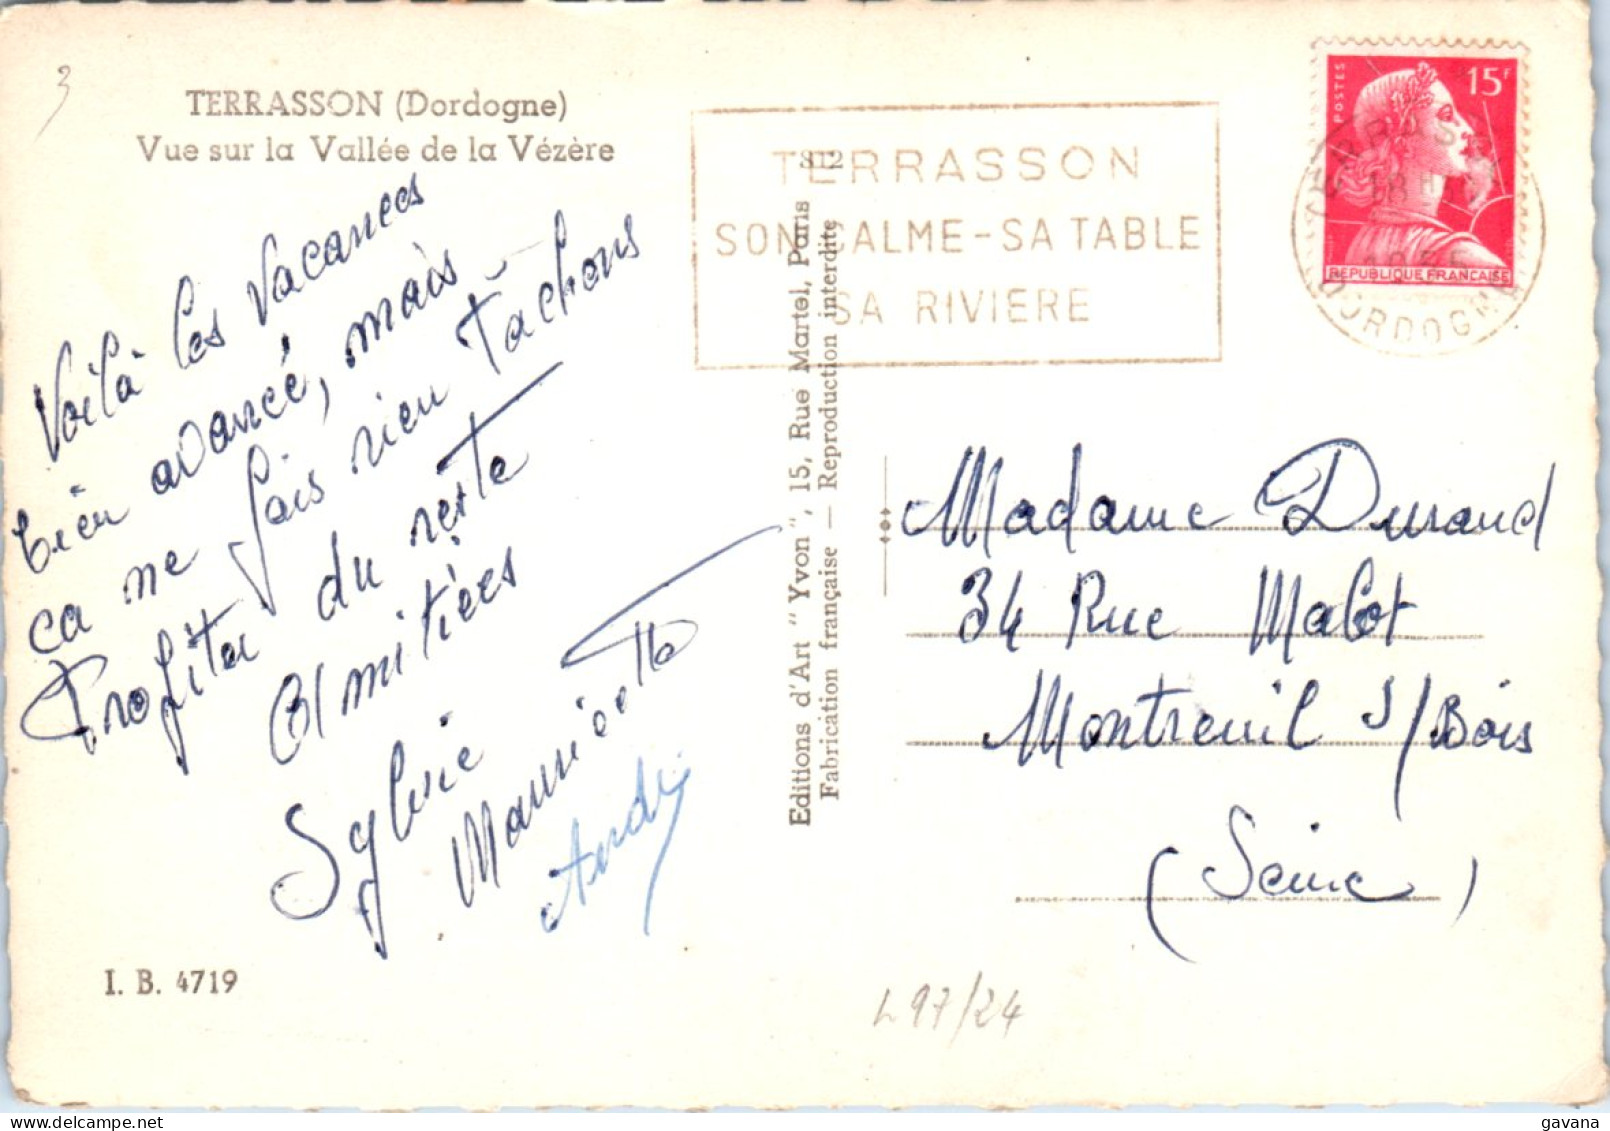 3
TERRASSON (Dordogne)
Vue sur la Vallée de la Vézère
Voilà les vacances
bien avancé, mais
ca ne fais rien Tachons
Profiter du reste
Amitiées
Sylvie
Mauricette
André
I. B. 4719
312
Editions d'Art "Yvon", 15, Rue Martel, Paris
Fabrication française — Reproduction interdite
TERRASSON
SON CALME - SA TABLE
SA RIVIERE
POSTES
15F
REPUBLIQUE FRANÇAISE
TERRASSON
18 H
DORDOGNE
Madame Durand
34 Rue Malot
Montreuil s/Bois
(Seine)
L97/24
gavana